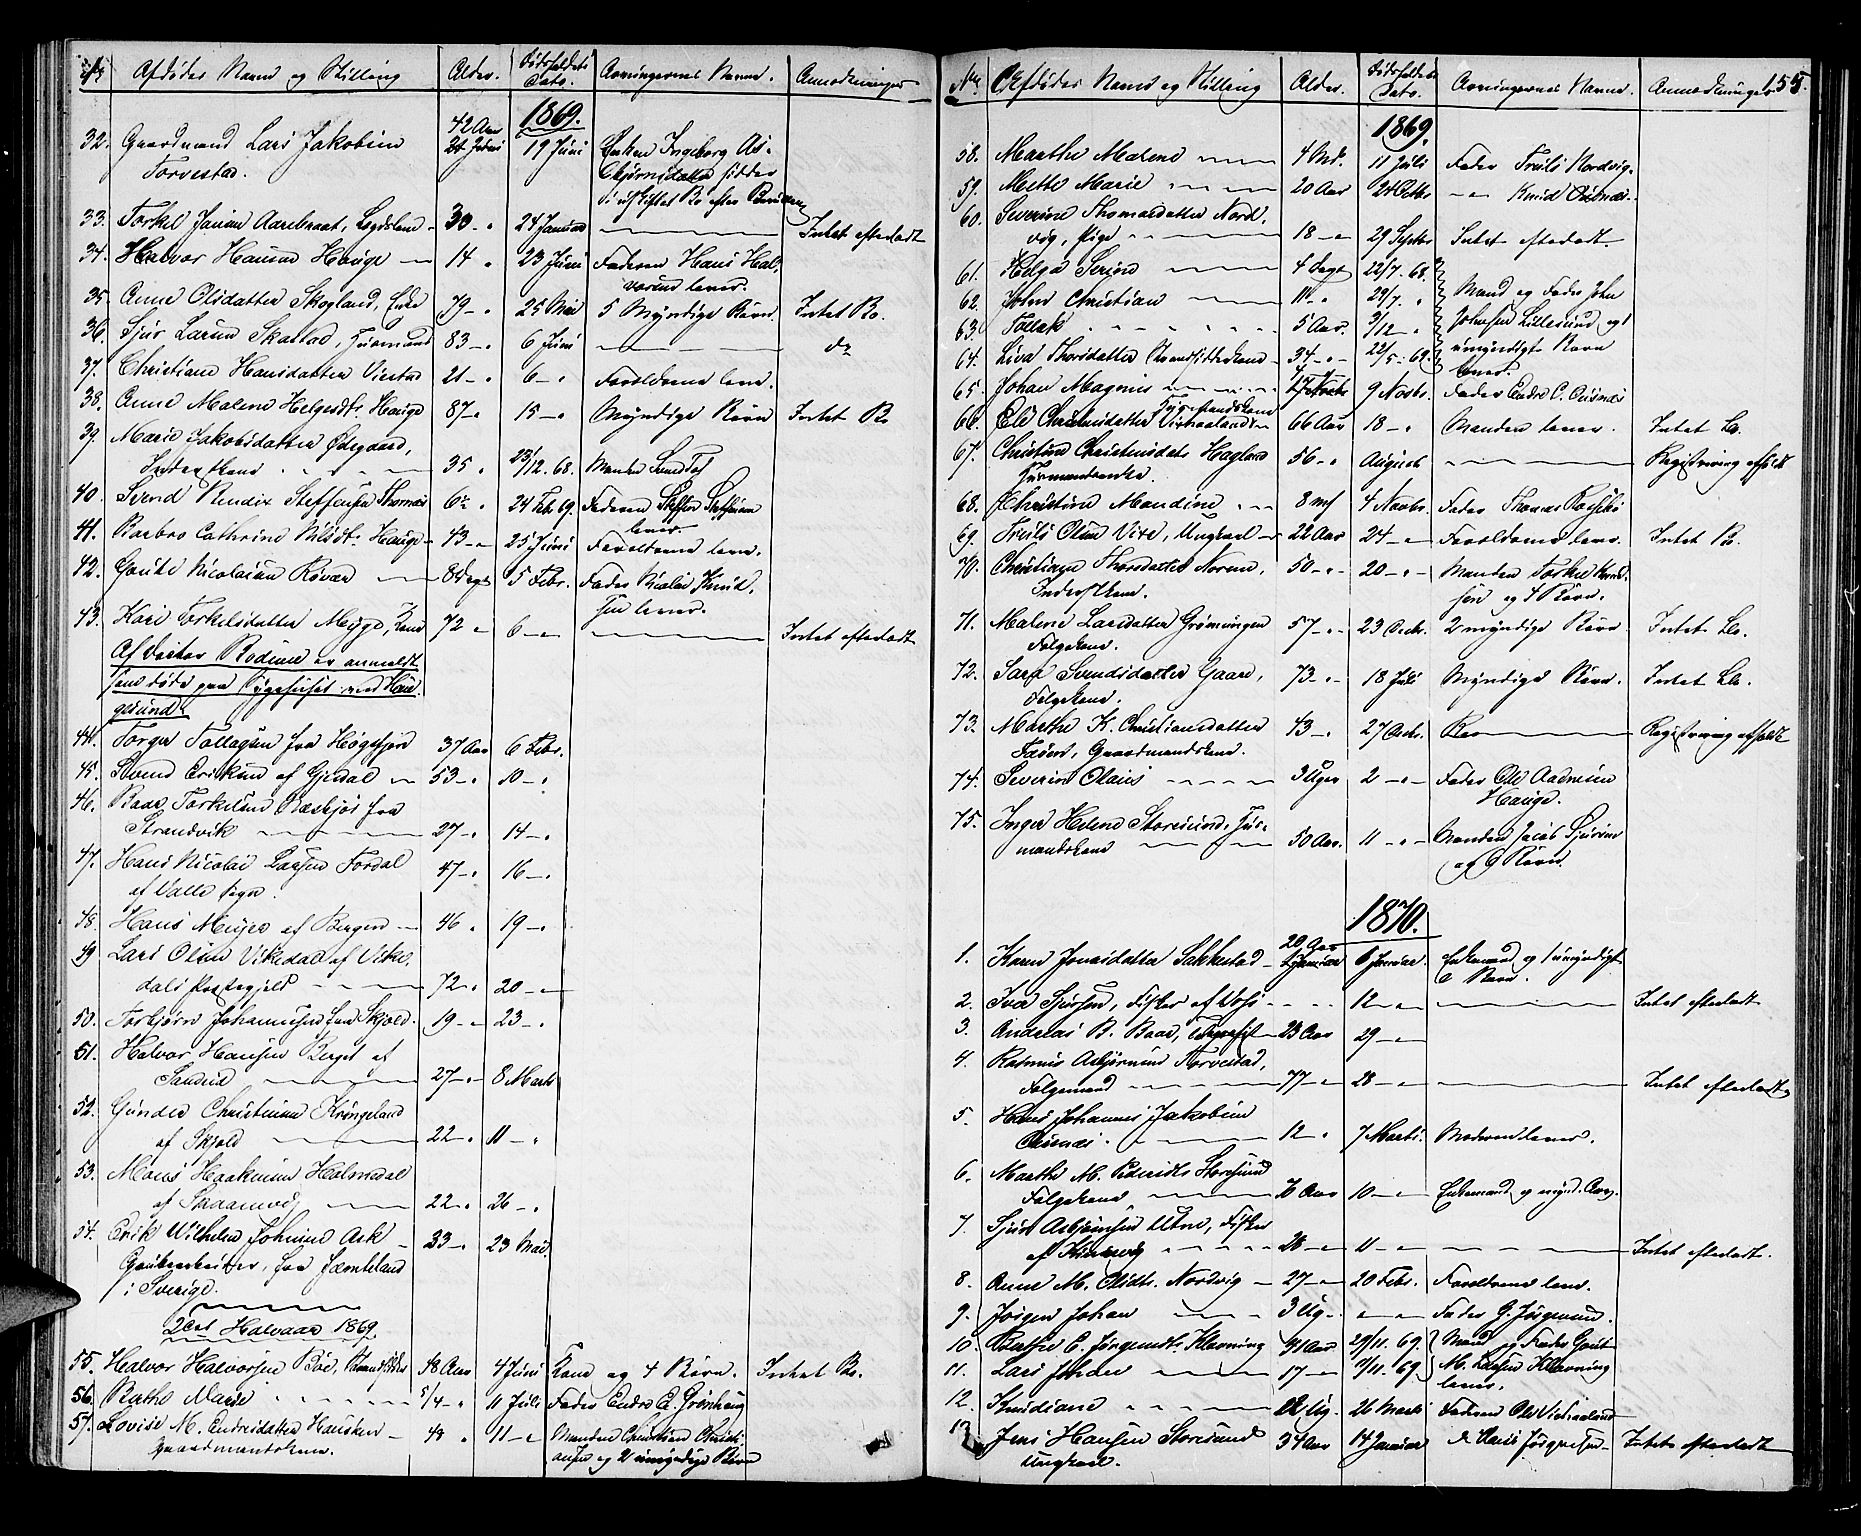 No Afdødes Navn og Stilling Alder. Dødsfaldets Dato. Arvingernes Navne. Anmærkninger
1869.
32. Gaardmand Lars Jakobsen 42 Aar 19 Juni Enken Ingeborg As-
Torvestad. bjørnsdatter sidder
i uskiftet Bo efter
33. Torkel Jansen Aarebraat, Lægdslem 30 - 24 Januar — Intet efterladt
34. Halvor Hansen Hauge — 14 " 23 Juni Faderen Hans Hal-
vorsen lever.
35. Anne Olsdatter Skogland, Enke 79 - 25 Mai 5 Myndige Børn. Intet Bo.
36. Sjur Larsen Skastad, Huusmand 83 - 6 Juni — do
37. Christiane Hansdatter Vierstad 21 - 6 - Forældrene lever.
38. Anne Malene Helgesdtr. Hauge 87 - 15 - Myndige Børn Intet Bo
39. Marie Jakobsdatter Ødegaard,
Inderstkone 35 " 23/12. 68. Manden
40. Svend Rendix Steffensen Thornes 6 " 24 Feb. 69. Faderen Steffen Steffensen
lever.
41. Barbro Cathrine Nilsdtr. Hauge - 43 - 25 Juni Forældrene lever.
42. Goute Nicolaisen Røvær — 8 Dage 5 Febr. Fader Nicolai Knud-
sen lever.
43. Kari Torkelsdatter Meyge, Kone 72 " 6 - — Intet efterladt
Af Doctor Rodine er anmeldt
som døde paa Sygehuset ved Hau-
gesund.
44. Torger Tollagsen fra Høgsfjord 37 Aar 6 Febr.
45. Svend Eriksen af Gjesdal — 53 - 10 - "
46. Baar Torkelsen fra
Strandvik — 27 - 14 - "
47. Hans Nicolai Larsen Fordal 47 - 16 - "
af Valle Sogn.
48. Hans Meyer af Bergen — 46 " 19 - "
49 Lars Olsen Vikedal af Vike-
dals Præstegjeld 72 - 20 -
50. Torbjørn Johannesen fra Skjold. 19 - 23 - "
51. Halvor Hansen Berget af
Sandeid — 27 - 8 Marts
52. Gunder Christensen Kringeland
af Skjold 22 - 11 - "
53. Mons Haakonsen Holmedal
af Skaanevig 22 - 26 - "
54. Erik Wilhelm Johnsen Ask - 33 - 23 Mai
Grubearbeider, fra Jæmteland
i Sverige.
2det Halvaar 1869.
55. Halvor Halvorsen Bøe, Strandsidder 48 Aar 4 Juni Kone og 4 Børn. Intet Bo.
56. Berthe Marie 5/4 - 11 Juli Fader Endre E. Grønhaug
57. Lovise M. Endresdatter Hausken - 48 " 11 - Manden Christian Christi-
gaardmandskone. ansen og 2 umyndige Børn
No Afdødes Navn og Stilling Alder. Dødsfaldets Dato. Arvingernes Navne. Anmærkninger 155.
1869.
58. Marthe Malene — 4 Md. 11 Juli Fader Truls Nordvig.
59. Mette Marie — 20 Aar 24 Octbr - Knud Osnes.
60. Severine Thomasdatter Nord-
vig, Pige 18 - 29 Septbr Intet efterladt
61. Helga Serine — 4 Dage 22/7. 68.
62. John Christian — 11 " 29/7. " Mand og Fader John
63. Tollak 5 Aar. 3/12 " Johnsen Lillesund og 1
64. Lisa Thorsdatter Strandsidderkone 34 - 22/5. 69. umyndigt Barn
lever.
65. Johan Magnus — 9 Novbr. Fader Endre C. Osnes
66. Eli Christensdatter Vikshaaland 66 Aar 18 - " Manden lever. Intet Bo.
67. Christine Christensdatr Hagland 56 - August — Registrering afholdt
Huusmandsenke.
68. Christine Mandine 8 md 4 Novbr. Fader Thomas
69. Truls Olsen Vire, Ungkarl - 22 Aar 24 - Forældrene lever. Intet Bo.
70. Christiane Thorsdatter Norem, 50 - 20 - " Manden Torkel Knud-
Inderstkone. sen og 4 Børn.
71. Malene Larsdatter Grønningen 57 - 23 Decbr. 2 myndige Børn. Intet Bo.
Følgekone.
72. Sara Svendsdatter Gaard, 73 - 18 Juli Myndige Børn. Intet Bo.
Følgekone.
73. Marthe K. Christiansdatter 43 - 27 Decbr. — Registrering afholdt
Gaardmandskone.
74. Severin Olaus — 3 Uger 2 - Fader Ole Aadnesen
Hauge.
75. Inger Helene Storesund, Huus-
mandskone — 50 Aar. 11 - - Manden Jacob Sjursen
og 6 Børn.
1870.
1. Karen Jonasdatter Sakkestad 20 Aar 6 Januar. Enkemand og 1 umyndigt
Barn.
2. Iver Sjursen, Fisker af Voss - - 12 - — Intet efterladt
3. Andreas B. Baar, 23 Aar 29 -
4. Rasmus Asbjørnsen Torvestad,
Følgemand — 77 - 28 - — Intet efterladt
5. Hans Johannes Jakobsen
Osnes. 12 " 7 Marts. Moderen lever.
6. Marthe M. Pedersdtr Storesund
Følgekone — 76 Aar 10 - Enkemand og mynd. Arv.
7. Sjur Asbjørnsen Utne, Fisker
af Kinservig 28 - 11 - — Intet efterladt.
8. Anne M. Olsdtr. Nordvig - 27 - 20 Febr. Forældrene lever.
9. Jørgen Johan — 3 Ug. - - Fader G. Jørgensen.
10. Berthe E. Jørgensdtr Klovning 41 Aar 29/11. 69. Mand og Fader Gout
11. Lars Johan — 17 - 7/11. 69. M. Larsen Klovning
lever.
12. Knudiane 12 Ug. 26 Marts Faderen Ole Vikshaaland
13. Jens Hansen Storesund 34 Aar 14 Januar do Hans Jørgensen Intet efterladt
Ungkarl.